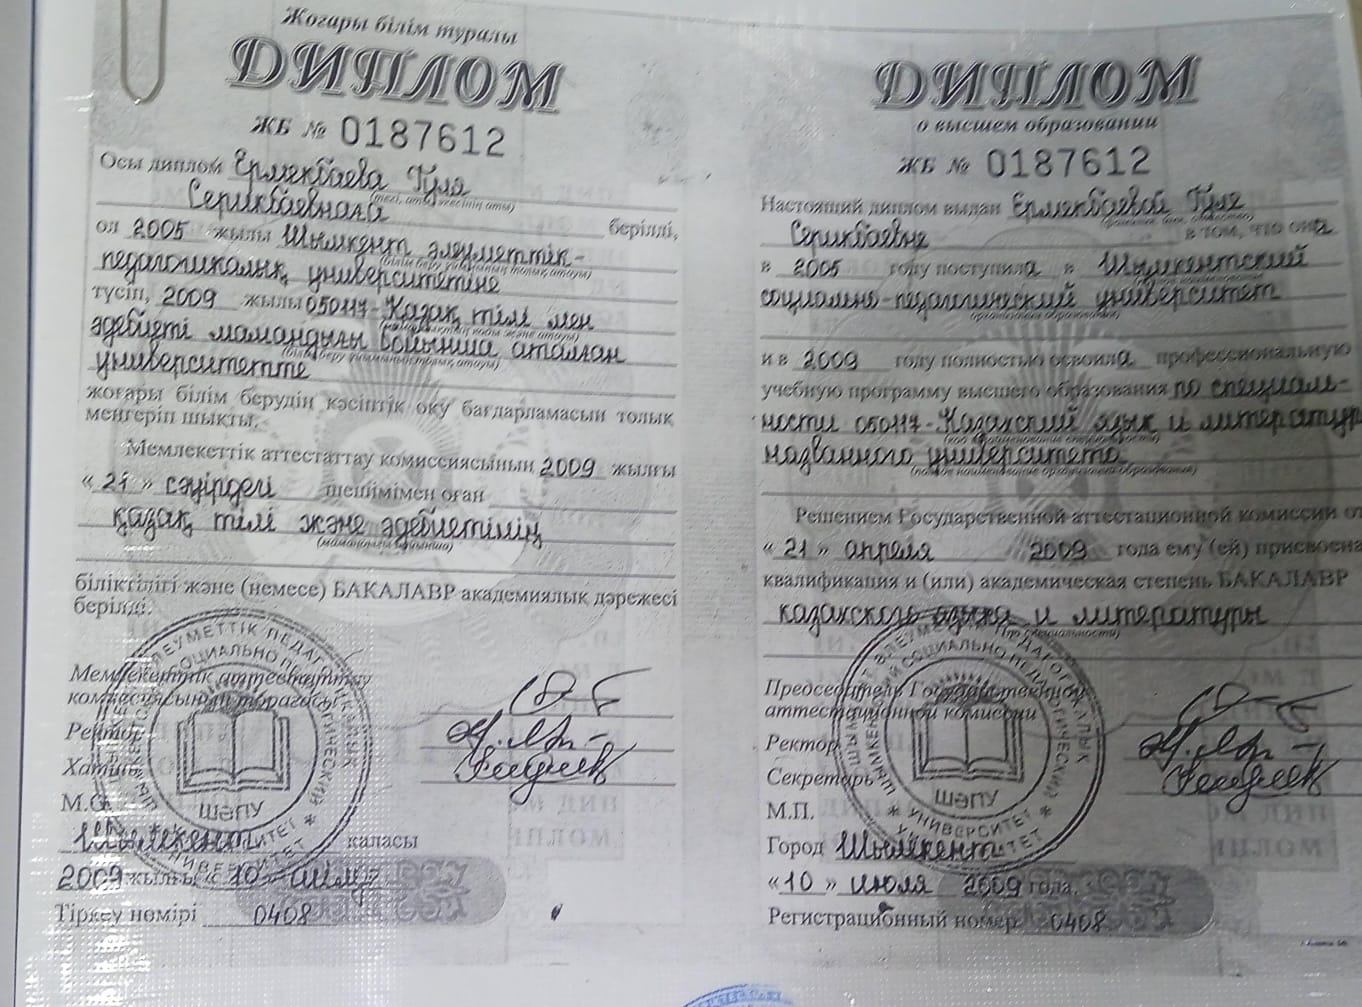 Жоғары білім туралы
ДИПЛОМ
ЖБ № 0187612
Осы диплом Ермекбаева Гуля
Серикбаевнаға
(тегі, аты, әкесінің аты)
берілді,
ол 2005 жылы Шымкент әлеуметтік-
педагогикалық университетіне
(білім беру ұйымының толық атауы)
түсіп, 2009 жылы 050117-Қазақ тілі мен
әдебиеті мамандығы бойынша аталған
университетте
(білім беру ұйымының толық атауы)
жоғары білім берудің кәсіптік оқу бағдарламасын толық
меңгеріп шықты.
Мемлекеттік аттестаттау комиссиясының 2009 жылғы
« 21 » сәуірдегі шешімімен оған
қазақ тілі және әдебиетінің
(мамандығы бойынша)
біліктілігі және (немесе) БАКАЛАВР академиялық дәрежесі
берілді.
Мемлекеттік аттестаттау
комиссиясының төрағасы
Ректор
Хатшы
М.О.
ШӘПУ
Шымкент қаласы
2009 жылғы « 10 » шілде
Тіркеу нөмірі 0408
ДИПЛОМ
о высшем образовании
ЖБ № 0187612
Настоящий диплом выдан Ермекбаевой Гуле
Серикбаевне в том, что она
в 2005 году поступила в Шымкентский
социально-педагогический университет
и в 2009 году полностью освоила профессиональную
учебную программу высшего образования по специаль-
ности 050117-Казахский язык и литература
названного университета
Решением Государственной аттестационной комиссии от
« 21 » апреля 2009 года ему (ей) присвоена
квалификация и (или) академическая степень БАКАЛАВР
казахского языка и литературы
(по специальности)
Председатель Государственной
аттестационной комиссии
Ректор
Секретарь
М.П.
ШӘПУ
Город Шымкент
« 10 » июля 2009 года.
Регистрационный номер 0408